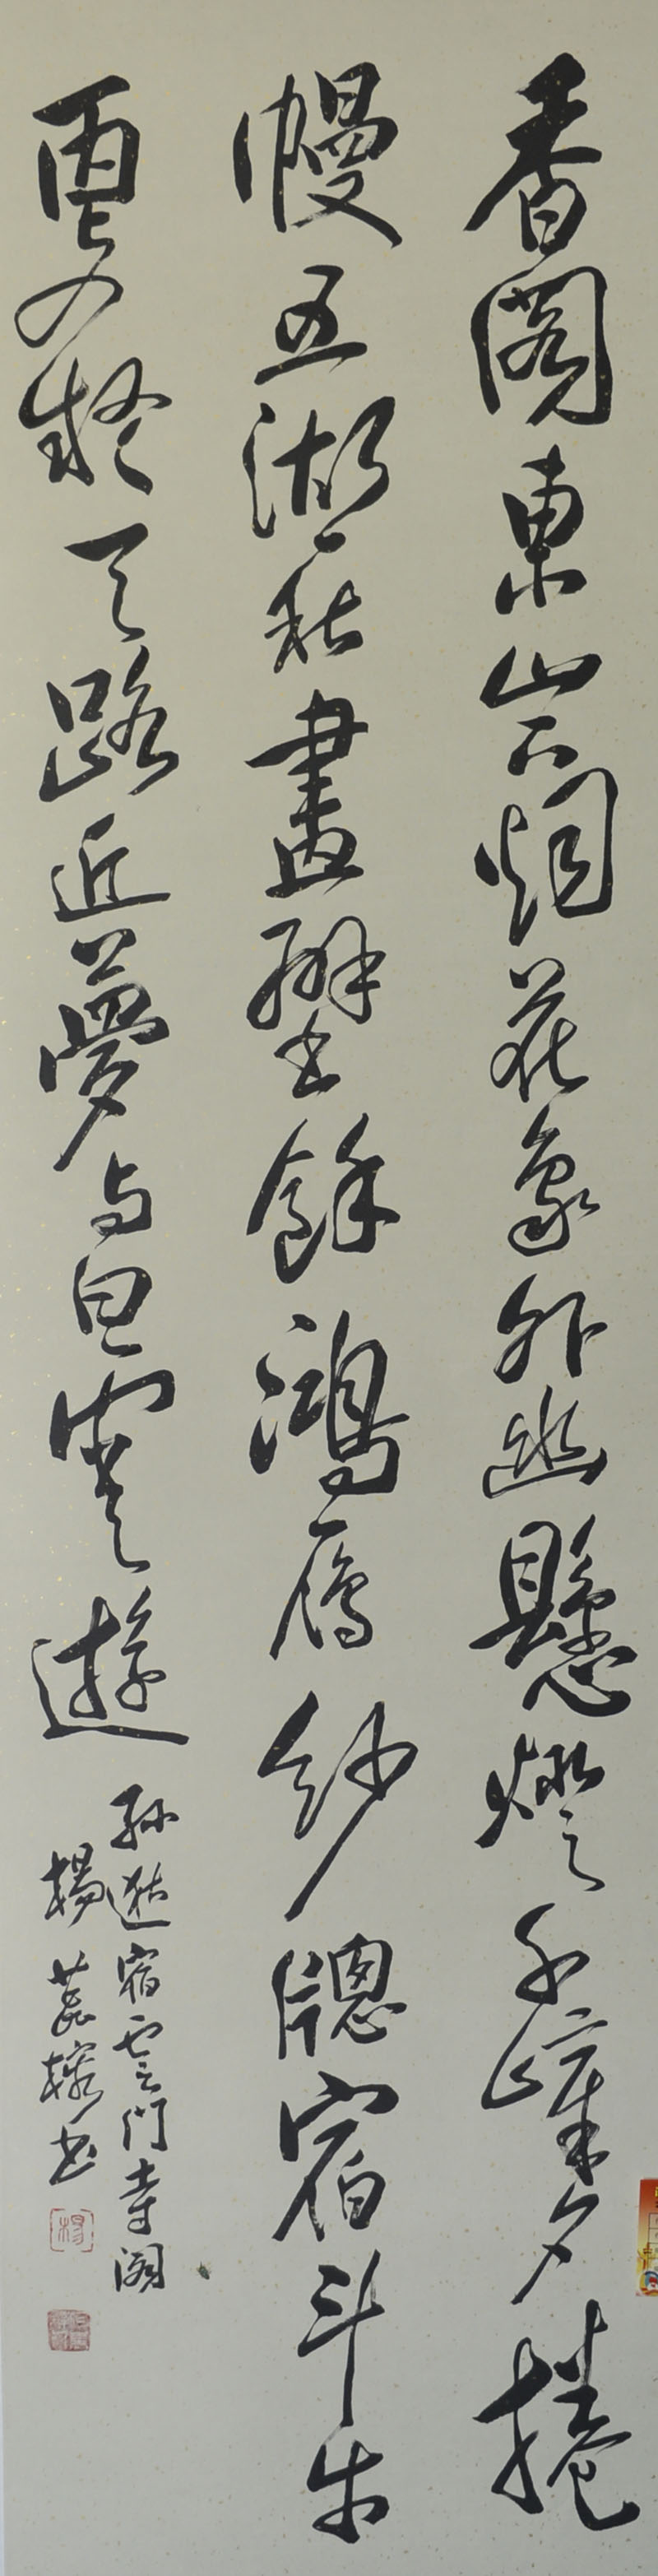 香閣東山下烟花象外幽懸燈千嶂夕捲
幔五湖秋畫壁餘鴻雁紗牕宿斗牛
更疑天路近夢与白雲遊
孫逖宿雲門寺閣
楊 書
楊